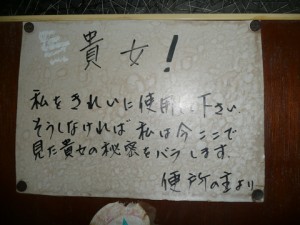 貴女!
私をきれいに使用して下さい.
そうしなければ 私は今ここで
見た貴女の秘密をバラします.
便所の主より